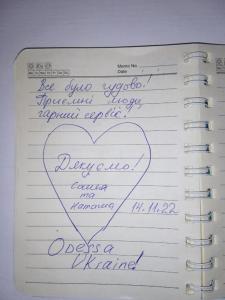 Memo No.
Date
Все було чудово!
Приємні люди,
гарний сервіс!
Дякуємо!
Сашка
та
Наташа
14.11.22
Odessa
Ukraine!